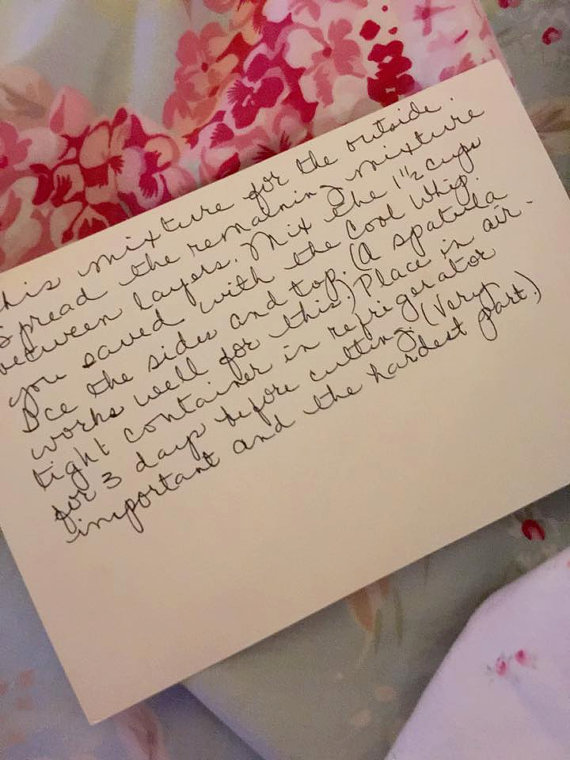 this mixture for the outside.
Spread the remaining mixture
between layers. Mix the 1 1/2 cups
you saved with the Cool Whip.
Ice the sides and top. (A spatula
works well for this.) Place in air-
tight container in refrigerator
for 3 days before cutting. (Very
important and the hardest part.)